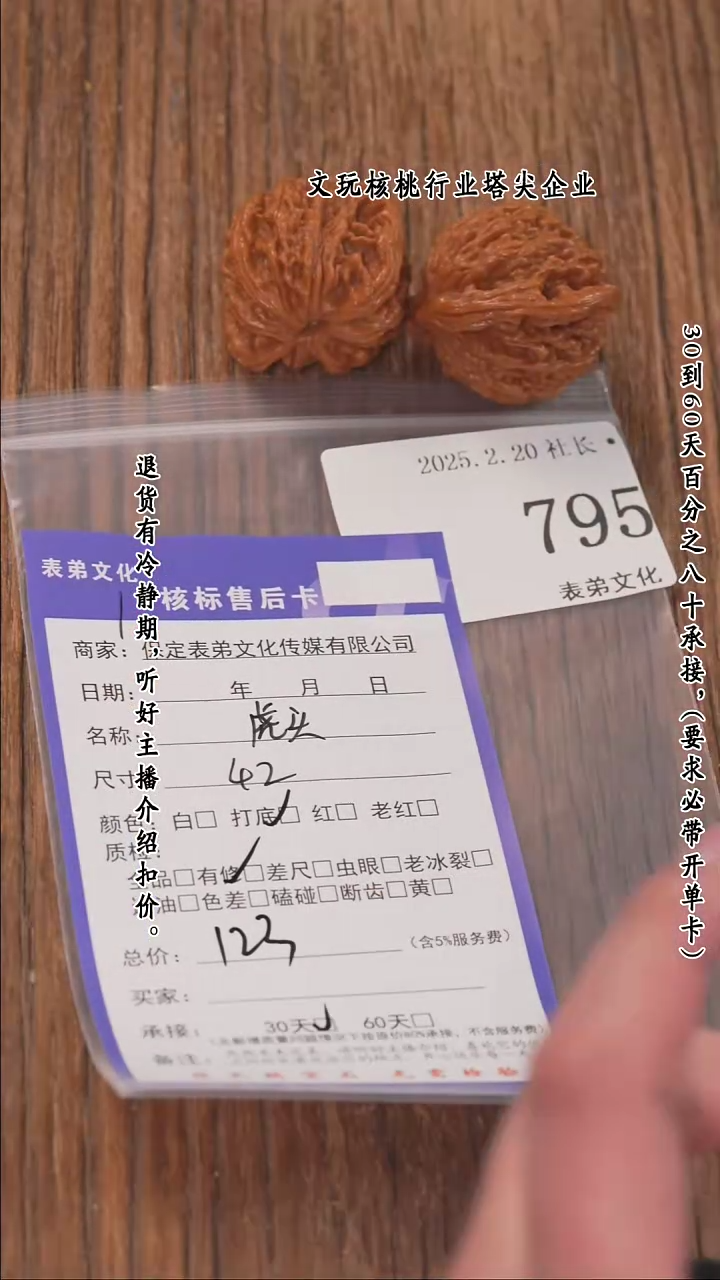 文玩核桃行业塔尖企业
30到60天百分之八十承接，（要求必带开单卡）
退货有冷静期，听好主播介绍扣价。
2025.2.20 社长
795
表弟文化
表弟文化
核标售后卡
商家：保定表弟文化传媒有限公司
日期： 年 月 日
名称： 虎头
尺寸 42
颜色： 白□ 打底□ 红□ 老红□
质检：
全品□有修□差尺□虫眼□老冰裂□
油□色差□磕碰□断齿□黄□
总价： 123 （含5%服务费）
买家：
承接： 30天□ 60天□
备注：